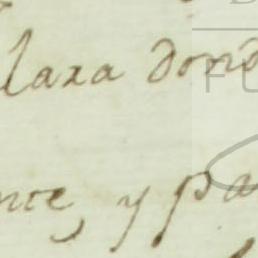 laza dond
nte, y pa